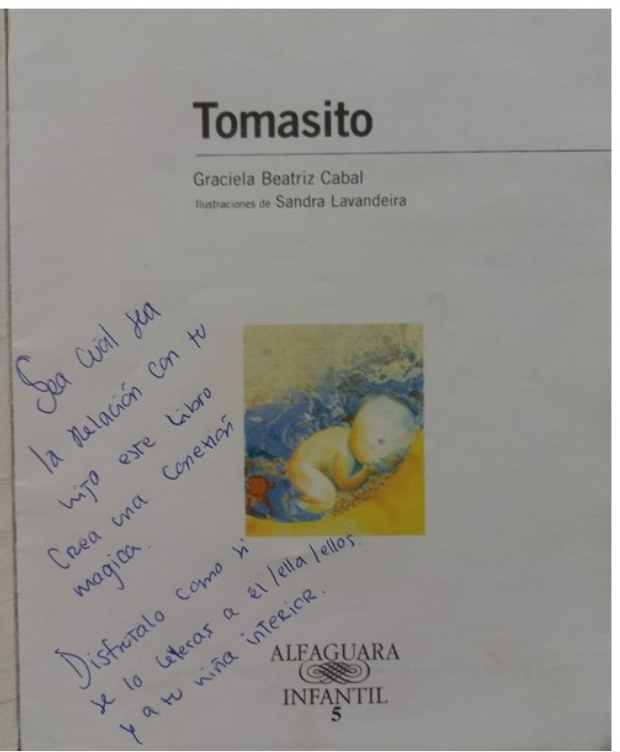 Tomasito
Graciela Beatriz Cabal
Ilustraciones de Sandra Lavandeira
Sea Cuál sea
la Relación con tu
hijo este Libro
Crea una Conexión
magica.
Disfrutalo como si
se lo leyeras a él/ella/ellos.
y a tu niña interior.
ALFAGUARA
INFANTIL
5